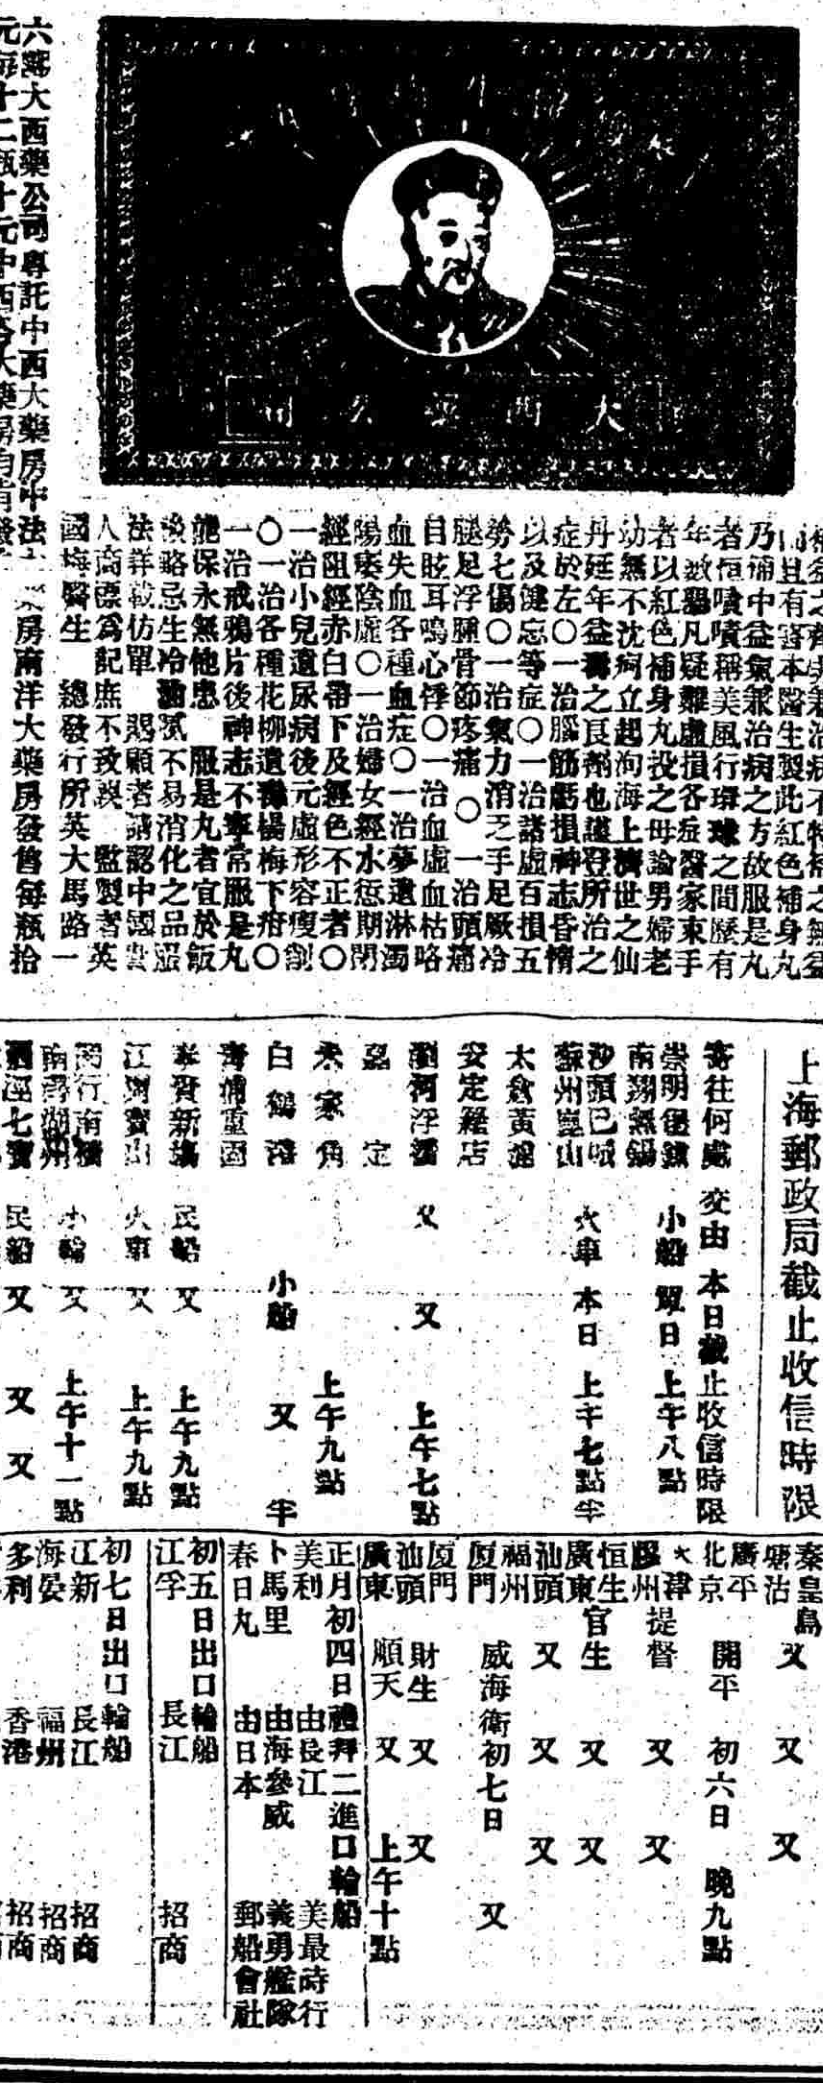 大西藥公司
補益之齊與兼治病不特補之無益
而且有害本醫生製此紅色補身丸
乃補中益氣兼治病之方故服是丸
者恒嘖嘖稱美風行環球之間歷有
年數凡疑難虛損各症醫家束手
者以紅色補身丸投之毋論男婦老
幼無不沈疴立起洵海上濟世之仙
丹延年益壽之良劑也謹登所治之
症於左〇一治腦筋虧損神志昏惰
以及健忘等症〇一治諸虛百損五
勞七傷〇一治氣力消乏手足厥冷
腿足浮腫骨節疼痛〇一治頭痛
目眩耳鳴心悸〇一治血虛血枯咯
血失血各種血症〇一治夢遺淋濁
陽痿陰虛〇一治婦女經水愆期閉
經阻經赤白帶下及經色不正者〇
一治小兒遺尿病後元虛形容瘦削
〇一治各種花柳遺毒楊梅下疳〇
一治戒鴉片後神志不寧常服是丸
能保永無他患 服是丸者宜於飯
後略忌生冷油膩不易消化之品服
法詳載仿單 賜顧者請認中國
人商標為記庶不致誤 監製者英
國梅醫生 總發行所英大馬路一
六 大西藥公司專託中西大藥房中法
藥房南洋大藥房發售每瓶拾
元每十二瓶十元中西各大藥房均有發
上海郵政局截止收信時限
寄往何處 交由 本日截止收信時限
崇明 小船 單日 上午八點
南翔無錫
沙頭 火車 本日 上午七點半
蘇州崑山
太倉黃
安定 店
瀏河浮橋 又 又 上午七點
嘉定
朱家角 上午九點
白鶴 小船 又 半
青浦重固
奉賢新場 民船 又 上午九點
江灣寶山 火車 又 上午九點
閔行南橋
南潯湖州 小輪 又 上午十一點
泗涇七寶 民船 又 又 又
秦皇島
塘沽 又 又 又
廣平
北京 開平 初六日 晚九點
天津
膠州 提督 又 又
恒生
廣東 官生 又 又
汕頭 又 又 又
福州
廈門 威海衛 初七日 又
廈門
汕頭 財生 又 又
廣東 順天 又 上午十點
正月初四日禮拜二進口輪船
美利 由長江 美最時行
卜馬里 由海參威 義勇艦隊
春日丸 由日本 郵船會社
初五日出口輪船
江孚 長江 招商
初七日出口輪船
江新 長江 招商
海晏 福州 招商
多利 香港 招商